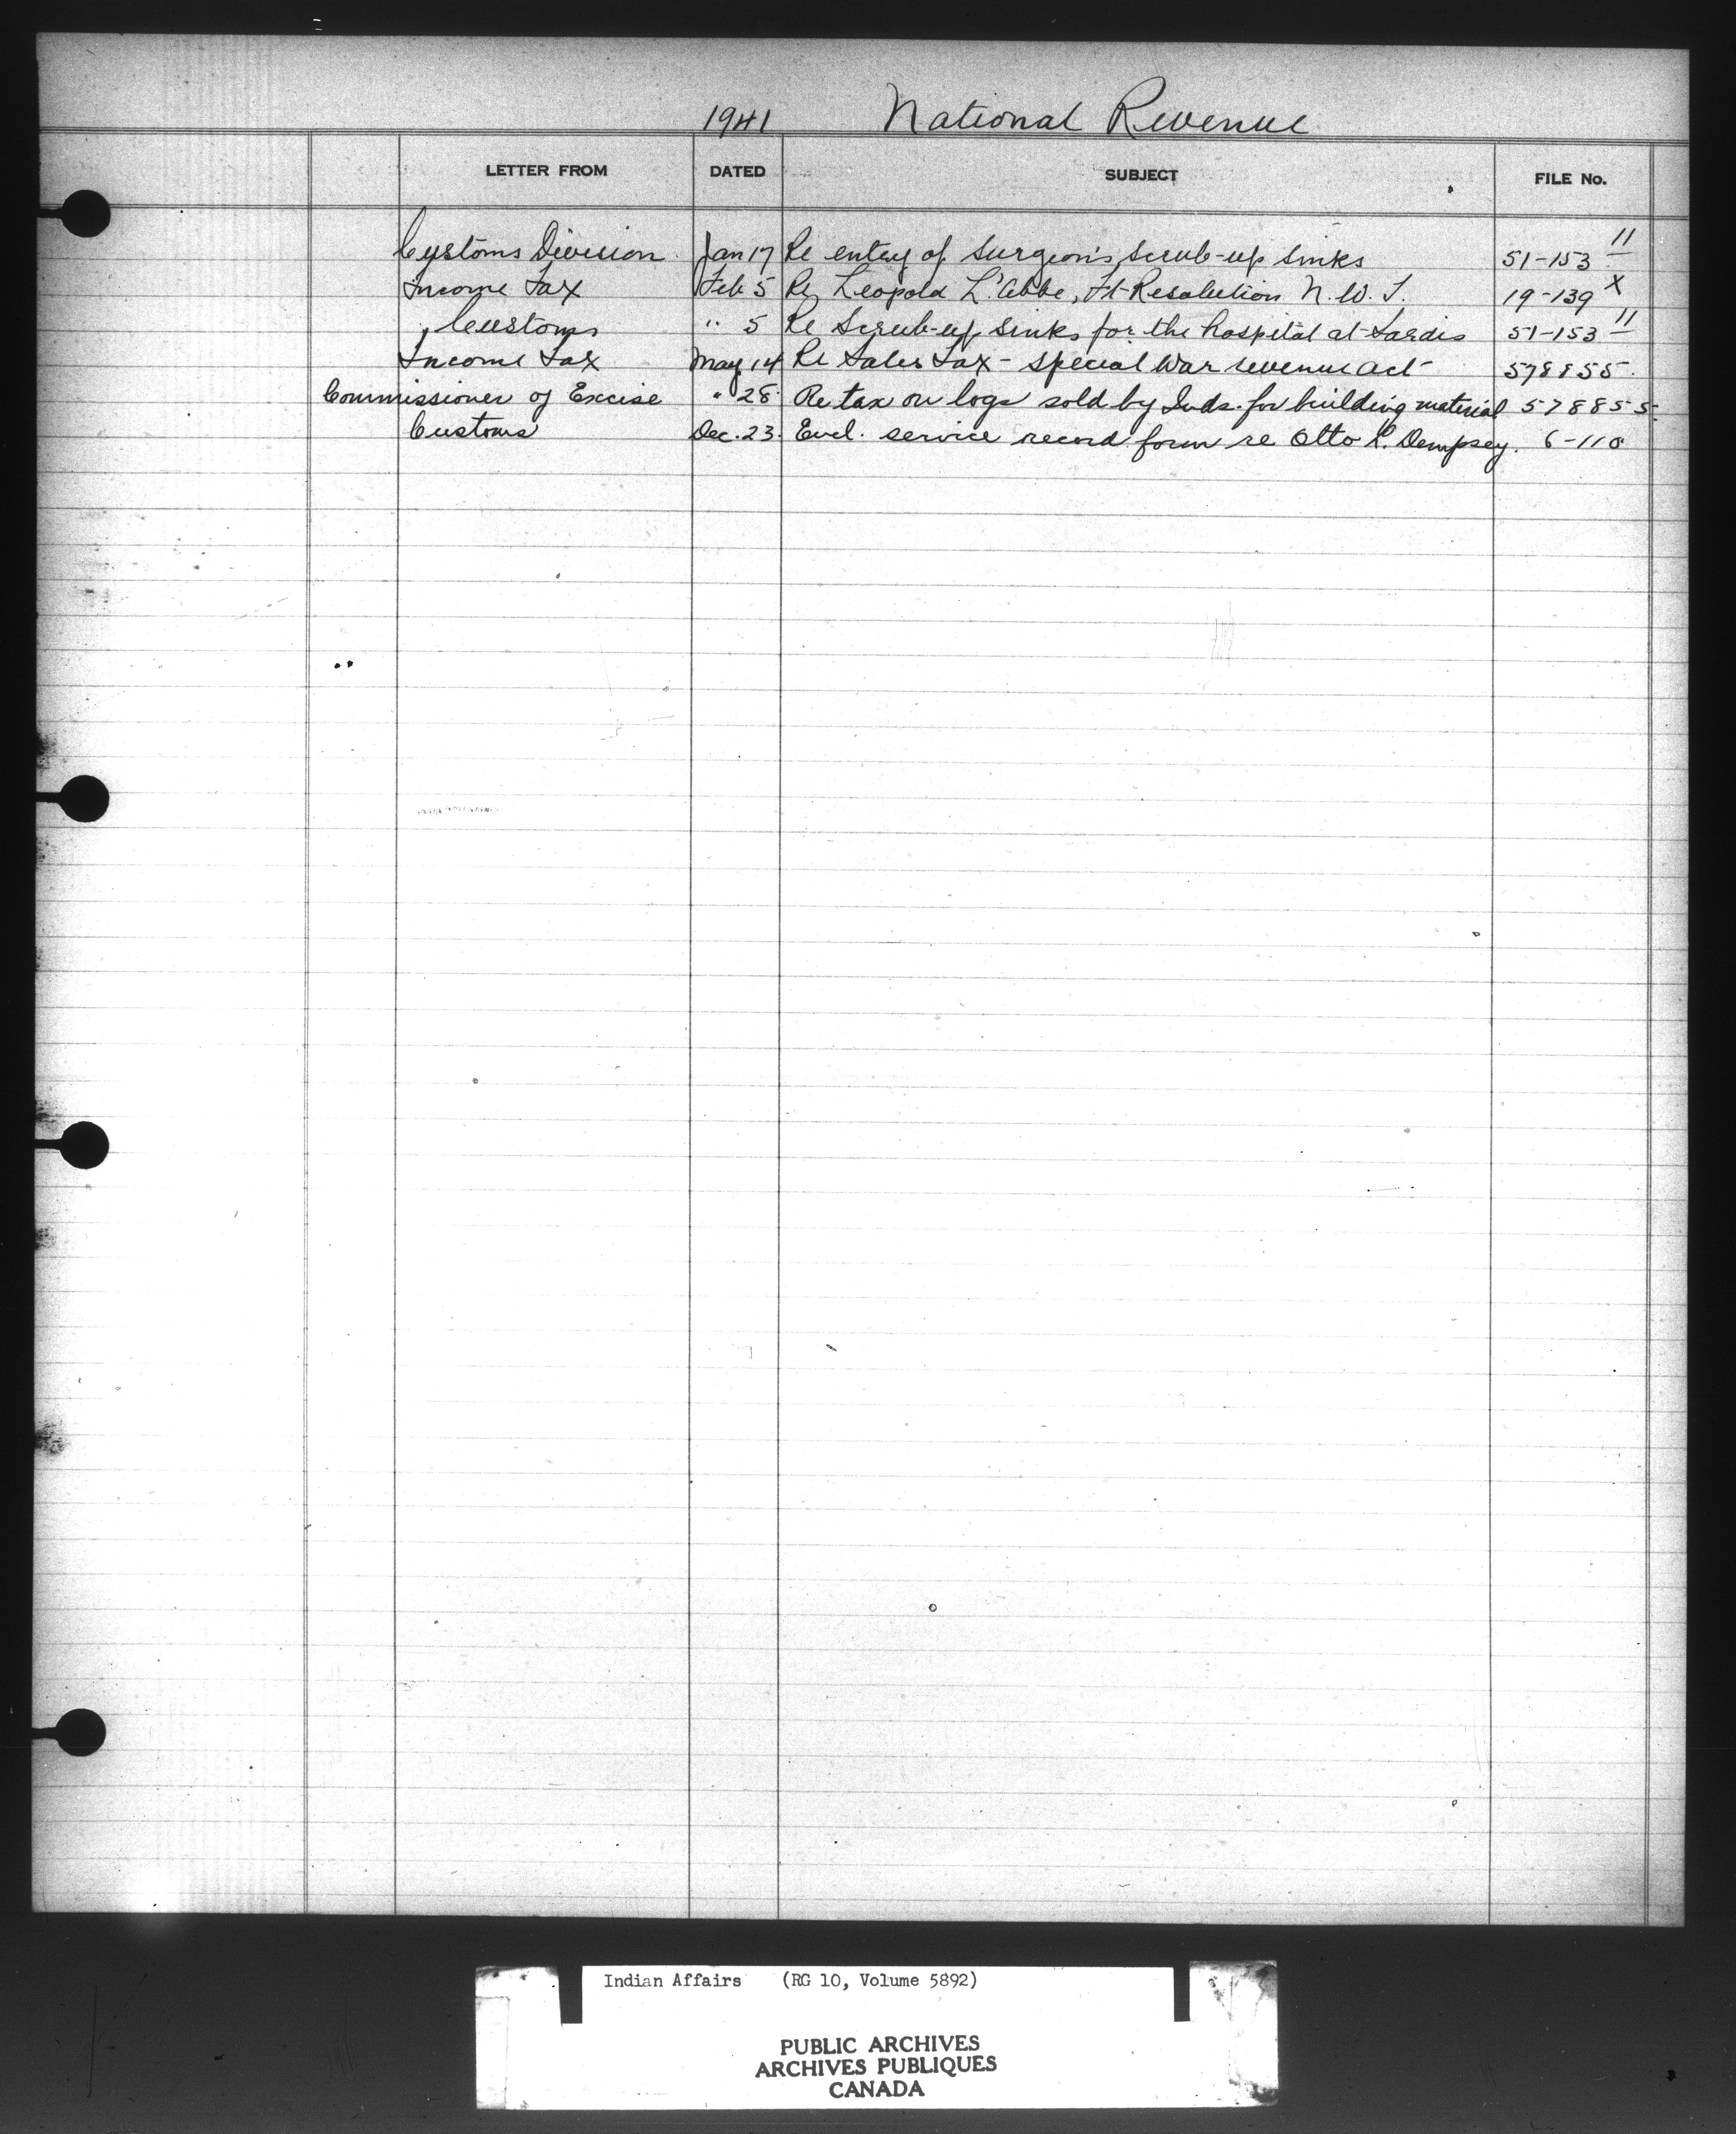 1941 National Revenue
LETTER FROM DATED SUBJECT FILE No.
Customs Division Jan 17 Re entry of Surgeon's Scrub-up Sinks 51-153 11
Income Tax Feb 5 Re Leopold L'Abbe, Ft Resolution N.W.T. 19-139 X
Customs " 5 Re Scrub-up Sinks for the hospital at Sardis 51-153 11
Income Tax May 14 Re Sales Tax - Special War revenue act 578855.
Commissioner of Excise " 28 Re tax on logs sold by Inds. for building material 578855.
Customs Dec. 23. Encl. service record form re Otto R. Dempsey. 6-110
Indian Affairs (RG 10, Volume 5892)
PUBLIC ARCHIVES
ARCHIVES PUBLIQUES
CANADA